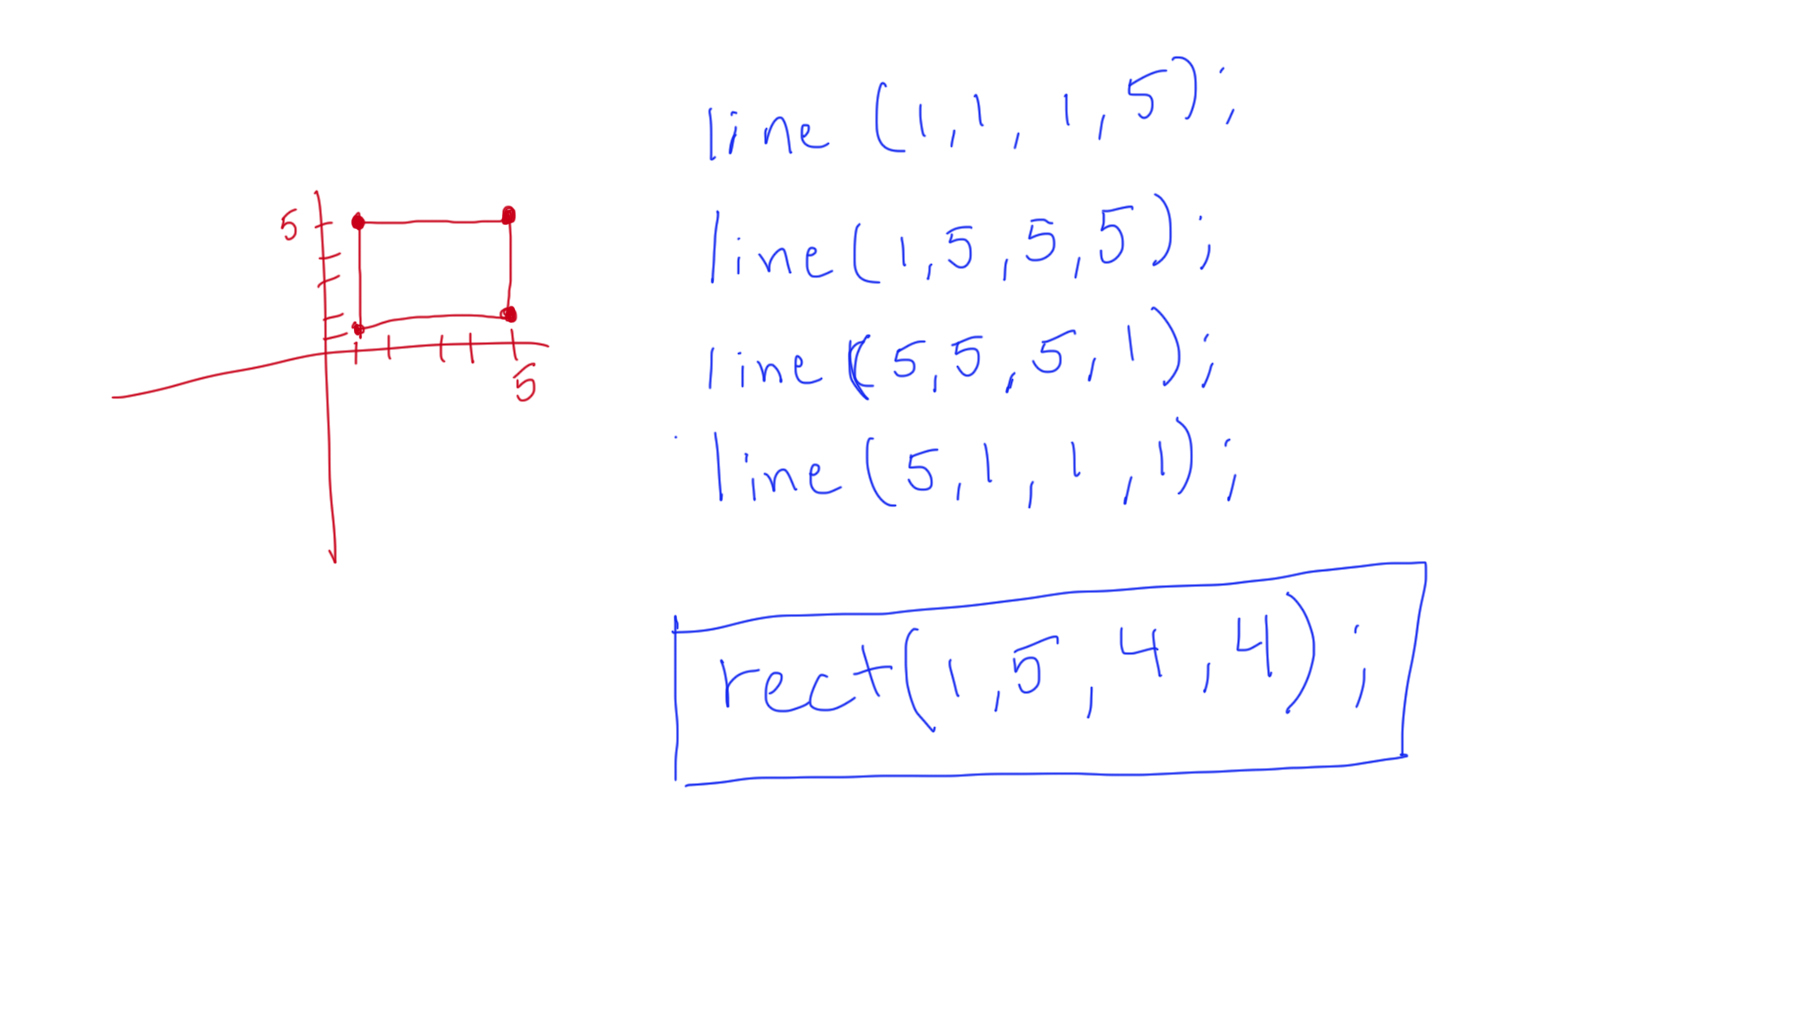 line (1,1,1,5);
line(1,5,5,5);
line(5,5,5,1);
line(5,1,1,1);
rect(1,5,4,4);
5
5